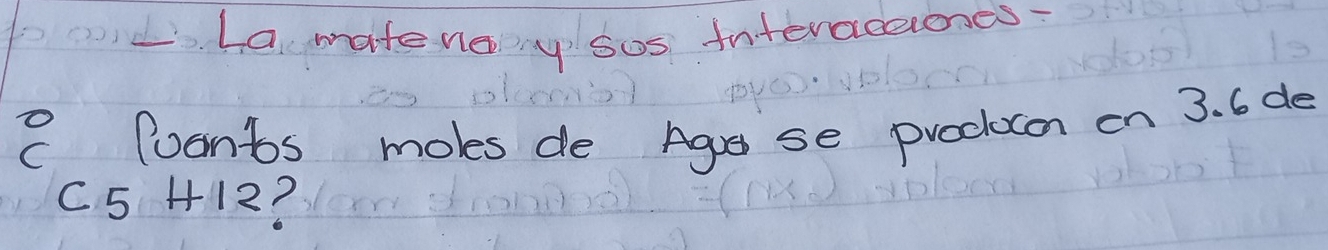 - La materia y sus Interacciones -
¿ Cuantos moles de Agua se producen en 3.6 de
C5 H12?